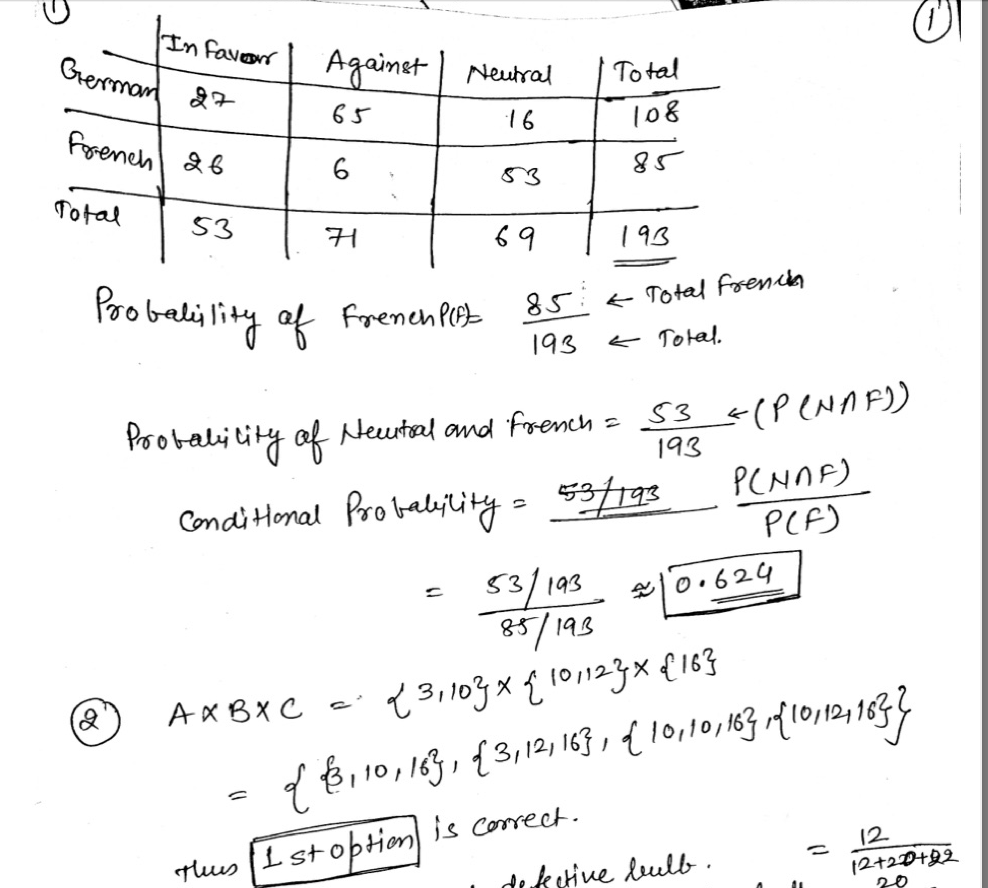 (1) (1)
In favour | Against | Neutral | Total
German | 27 | 65 | 16 | 108
French | 26 | 6 | 53 | 85
Total | 53 | 71 | 69 | 193
Probability of French P(F)= 85 ← Total French
193 ← Total.
Probability of Neutral and French = 53/193 ← (P(N∩F))
Conditional Probability = 53/193 P(N∩F)/P(F)
= 53/193 / 85/193 ≈ 0.624
(2) A×B×C = {3,10} × {10,12} × {16}
= { {3,10,16}, {3,12,16}, {10,10,16}, {10,12,16} }
Thus 1st option is correct.
defective bulb. = 12
12+20+22
20